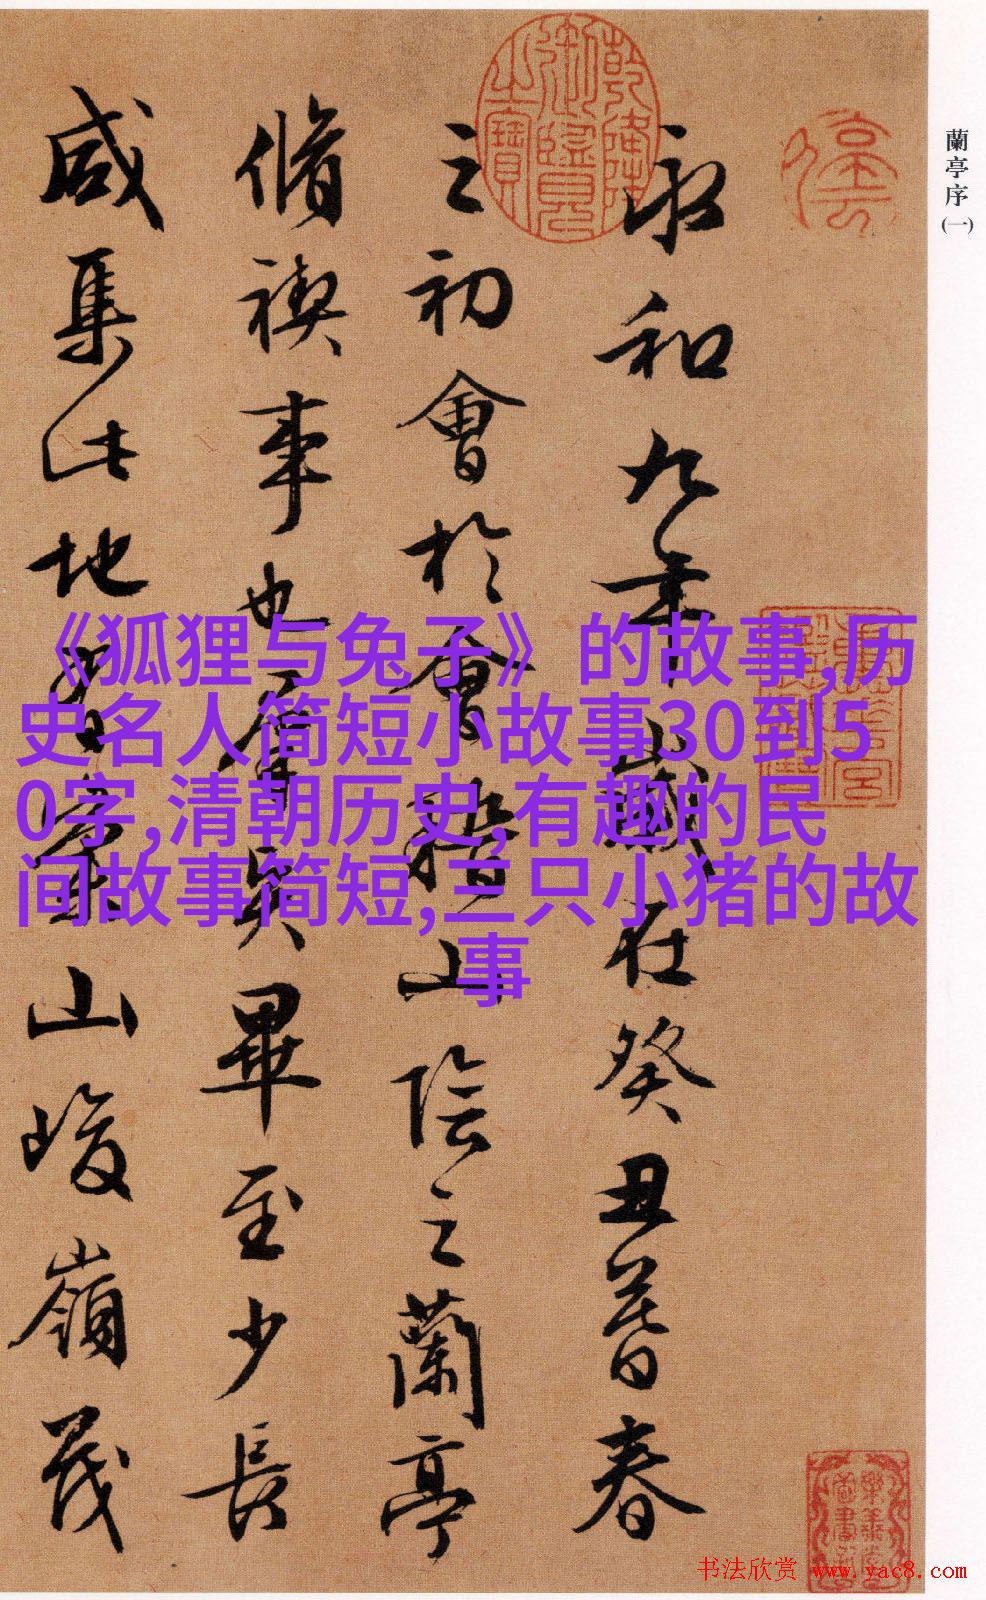 蘭亭序(一)
永和九年歲在癸丑暮春
之初會於會稽山陰之蘭亭
脩禊事也羣賢畢至少長
咸集此地有崇山峻嶺茂
乾隆御覽之寶
《狐狸与兔子》的故事,历
史名人简短小故事30到5
0字,清朝历史,有趣的民
间故事简短,三只小猪的故
事
书法欣赏 www.yac8.com